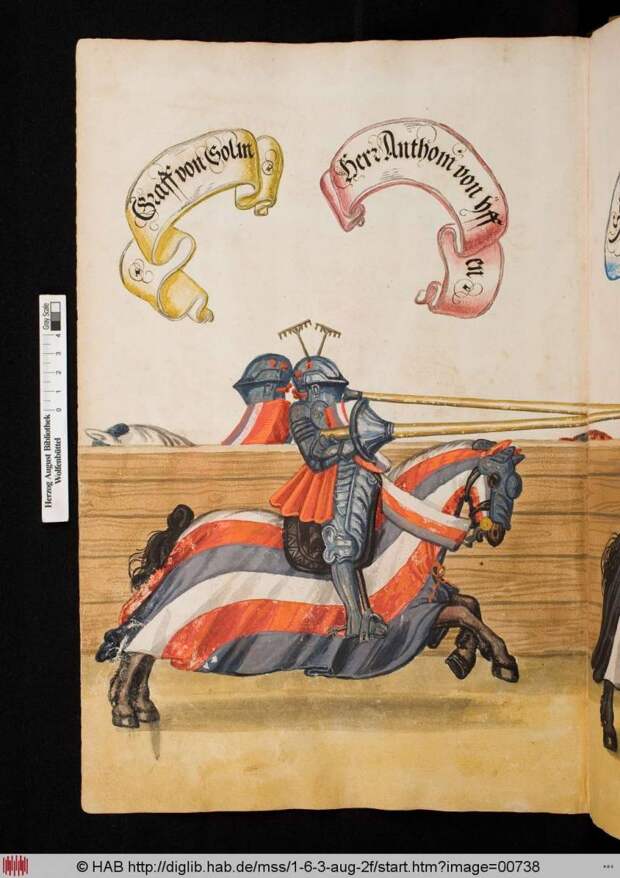 Graff von Solm
Herr Anthom von yff
en
Herzog August Bibliothek
Wolfenbüttel
0 1 2 3 4
Gray Scale
© HAB http://diglib.hab.de/mss/1-6-3-aug-2f/start.htm?image=00738